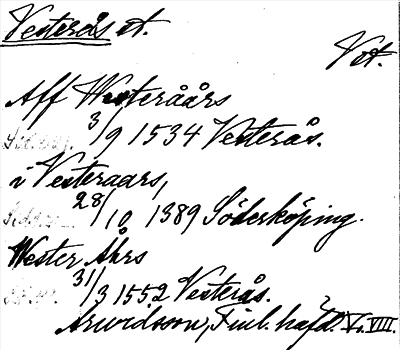 Vesterås st.
Vst.
Aff Westeråårs
3/9 1534 Vesterås.
i Vesteraars,
28/10 1389 Söderköping.
Wester Åhrs
31/3 1552 Vesterås.
Arwidsson, Finl. häfd. V. VIII.